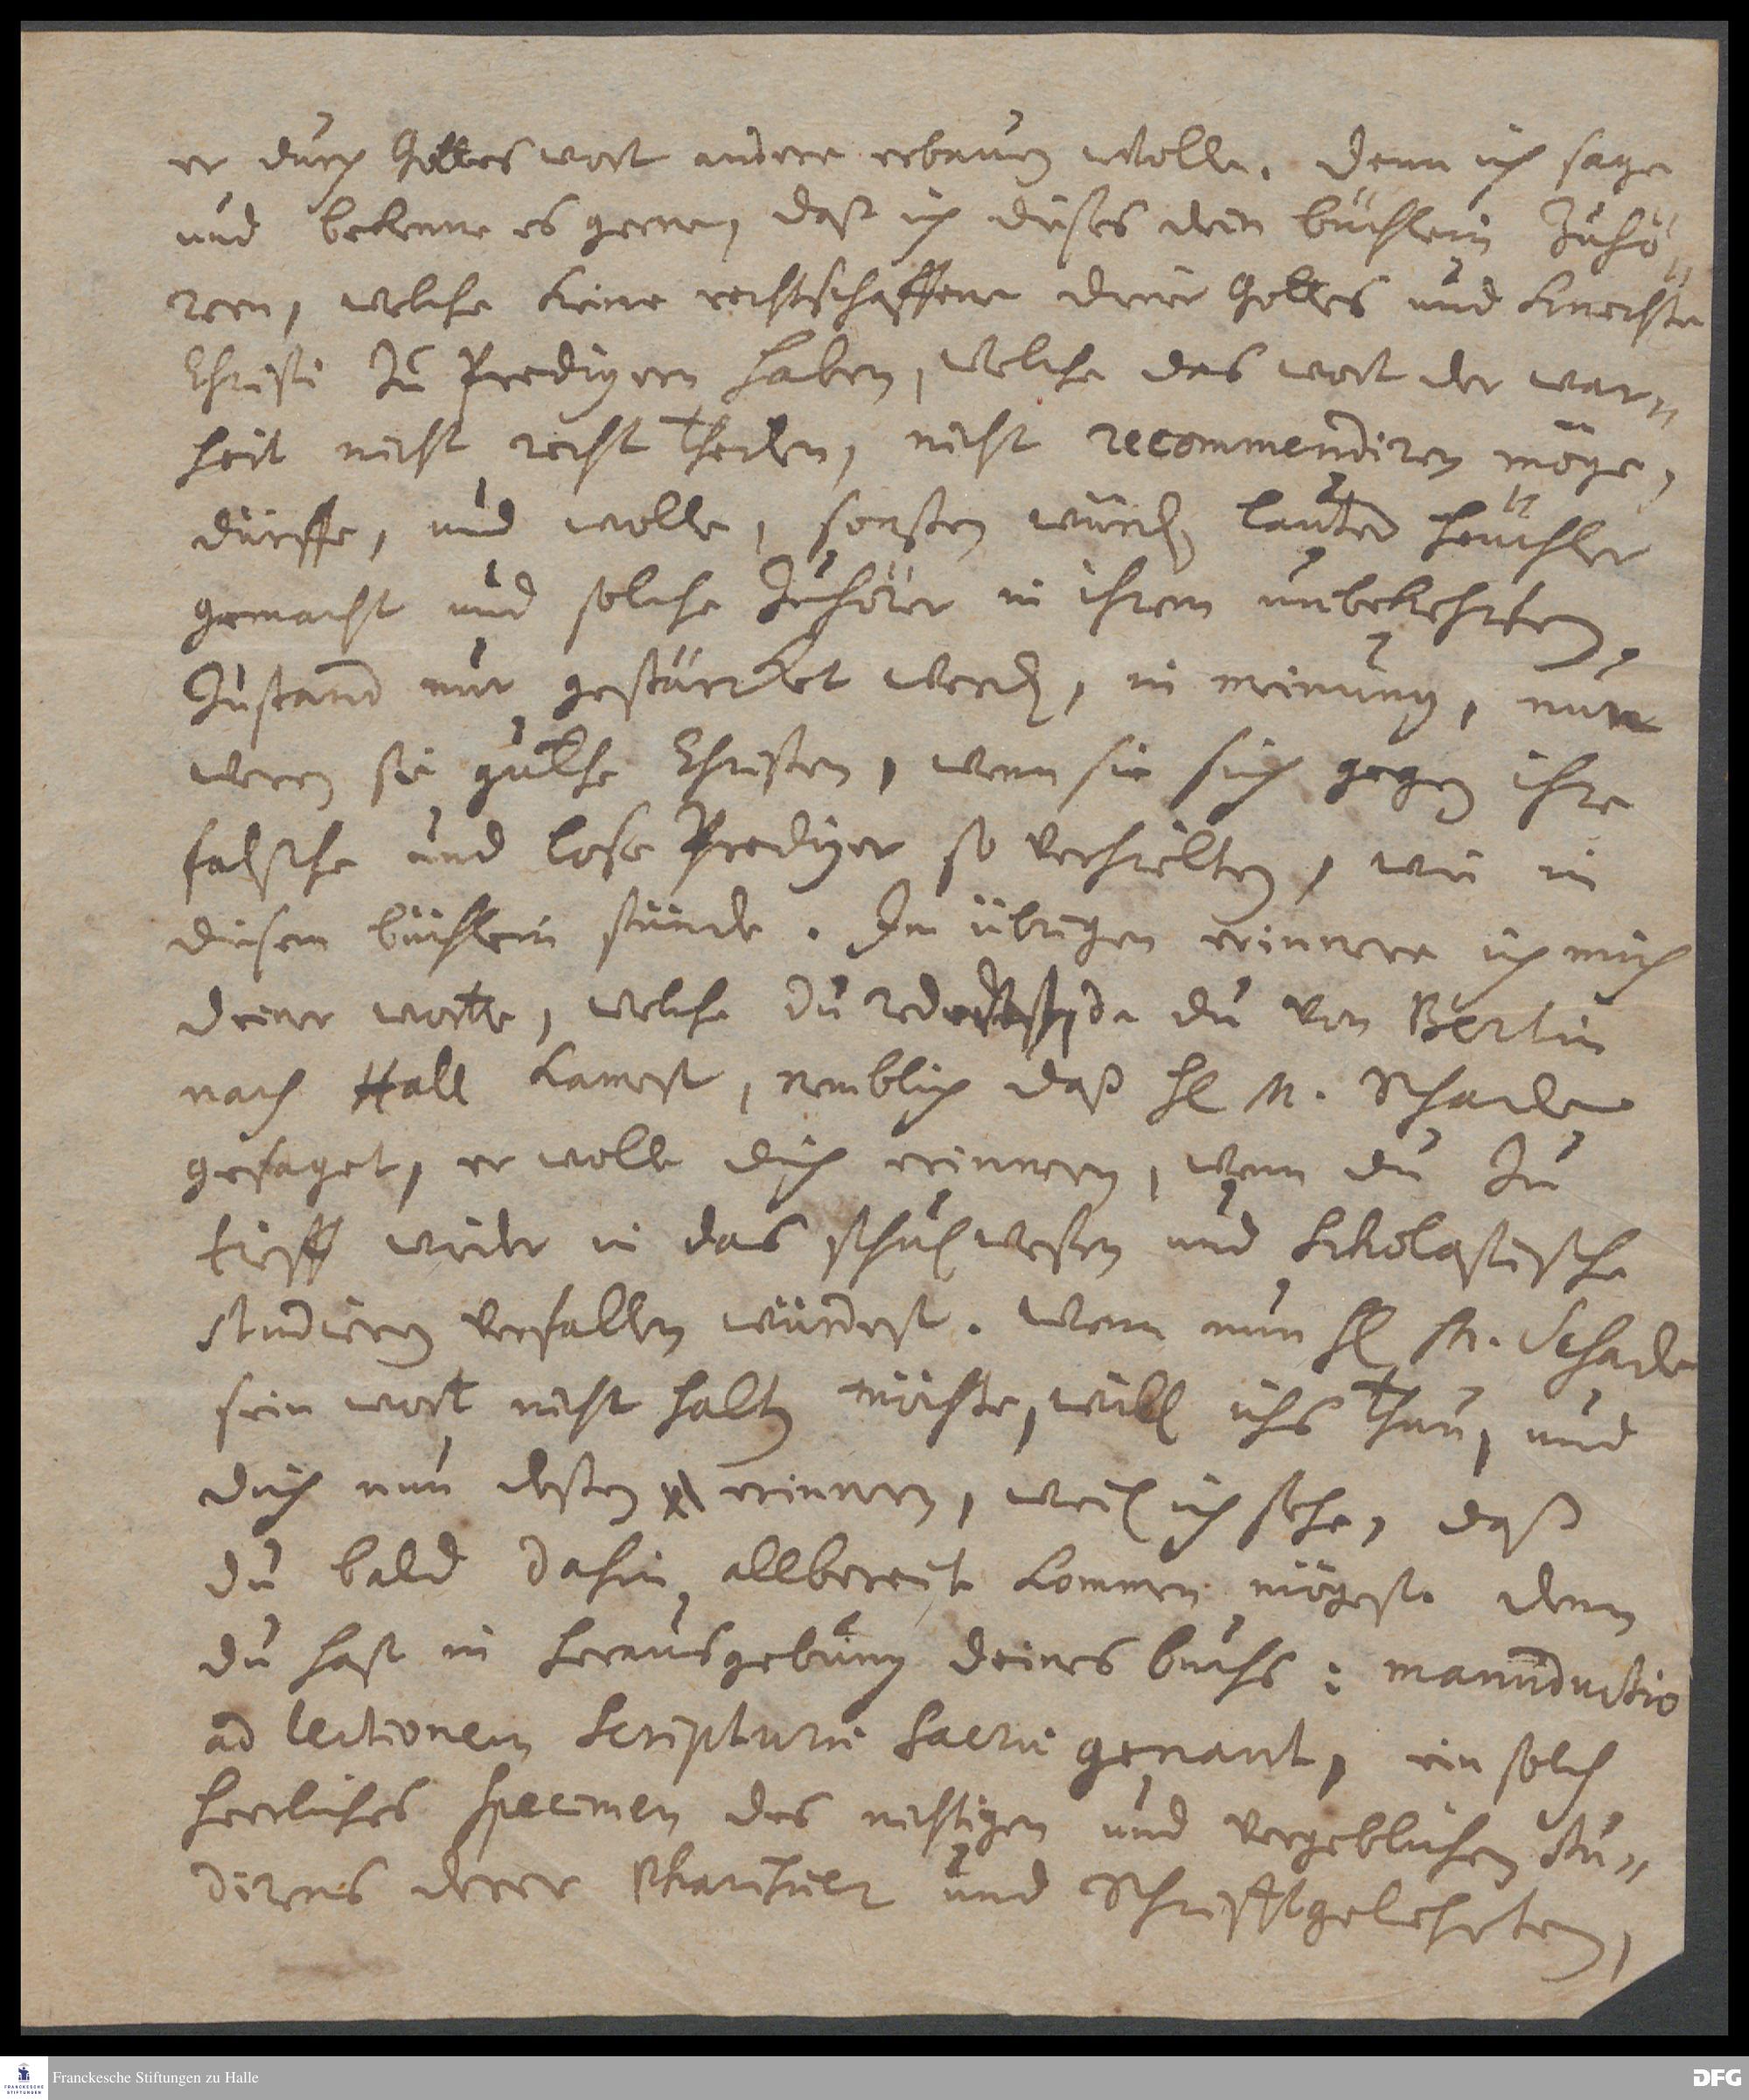 er durch Gottes wort andere erbauen wolle. denn ich sage
und bekenne es gerne, daß ich dieses dein büchlein Zuhö„
rern, welche keine rechtschaffene diener Gottes und knechte
Christi zu Predigern haben, welche das wort der war„
heit nicht recht theilen, nicht recommendiren möge,
dürffe, und wolle, sonsten würden lauter heuchler
gemacht und solche Zuhörer in ihrem unbekehrten
Zustand nur gestärcket werden, in meinung, nun
weren sie guthe Christen, wenn sie sich gegen ihre
falsche und lose Prediger so verhielten, wie in
diesem büchlein stünde. Im übrigen erinnere ich mich
deiner worte, welche du redetest, da du von Berlin
nach Hall kamest, nemblich daß H M. Schade
gesaget, er wolle dich erinnern, wenn du zu
tieff wieder in das schulwesen und scholastische
studieren verfallen würdest. Wenn nun H M. Schade
sein wort nicht halten möchte, will ichs thun, und
dich nun dessen erinnern, weil ich sehe, daß
du bald dahin allbereit kommen mögest. denn
du hast in herausgebung deines buchs: manuductio
ad lectionem scripturæ sacræ genant, ein solch
herrliches specimen des nichtigen und vergeblichen stu„
direns derer Pharisäer und Schrifftgelehrten,
Franckesche Stiftungen zu Halle
FRANCKESCHE STIFTUNGEN
DFG